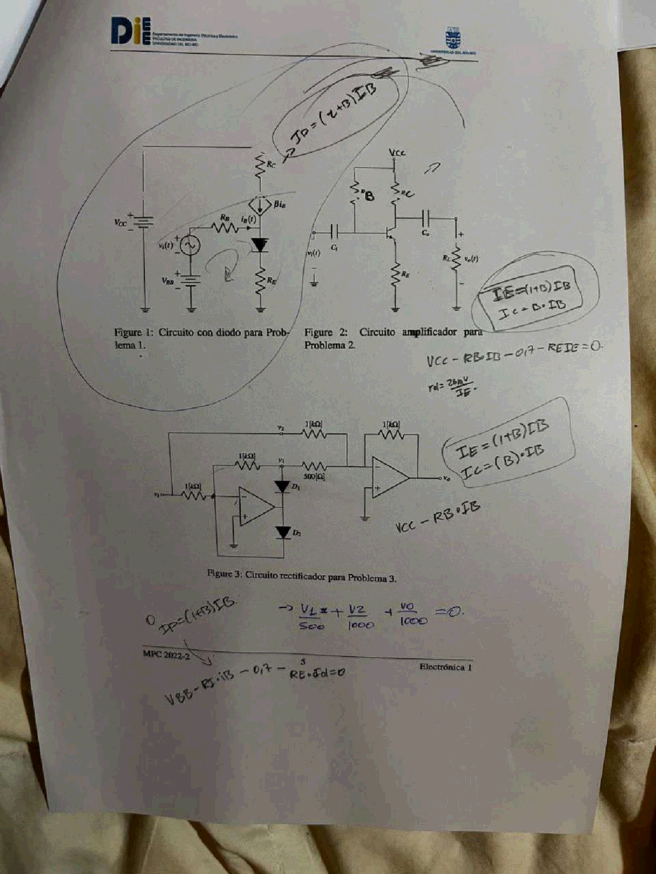 DiEE Departamento de Ingeniería Eléctrica y Electrónica
FACULTAD DE INGENIERÍA
UNIVERSIDAD DEL BÍO-BÍO
UNIVERSIDAD DEL BÍO-BÍO
ID=(1+B)IB
VCC
RC
RB
RC
βiB
VCC
RB
iB(t)
C1
C2
vi(t)
vi(t)
RL
vo(t)
VBB
RE
RE
IE=(1+B)IB
IC=B·IB
Figure 1: Circuito con diodo para Prob-
lema 1.
Figure 2: Circuito amplificador para
Problema 2.
VCC - RB·IB - 0,7 - REIE = 0.
rd= 26mV
IE.
1[kΩ]
1[kΩ]
v2
1[kΩ]
v1
500[Ω]
1[kΩ]
D1
D2
vo
IE=(1+B)IB
IC=(B)·IB
VCC - RB·IB
Figure 3: Circuito rectificador para Problema 3.
ID=(1+B)IB
→ V1 + V2 + V0 =0.
500 1000 1000
MPC 2022-2
Electrónica 1
VBB - RB·iB - 0,7 - RE·Id=0